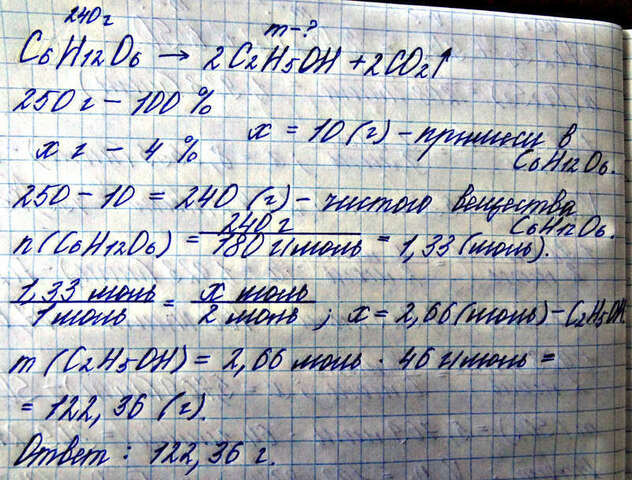 240 г
m-?
C6H12O6 → 2C2H5OH + 2CO2↑
250 г - 100 %
x г - 4 %
x = 10 (г) - примеси в
C6H12O6.
250 - 10 = 240 (г) - чистого вещества
C6H12O6.
n(C6H12O6) = 240 г / 180 г/моль = 1,33 (моль).
1,33 моль / 1 моль = x моль / 2 моль ; x = 2,66 (моль) - C2H5OH
m (C2H5OH) = 2,66 моль · 46 г/моль =
= 122,36 (г).
Ответ: 122,36 г.